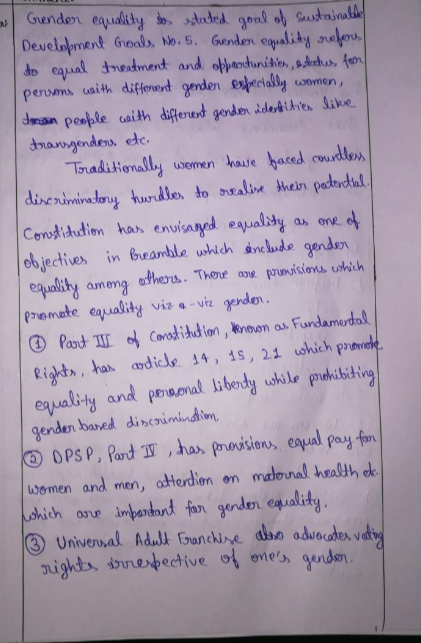 Gender equality is stated goal of Sustainable
Development Goals No. 5. Gender equality refers
to equal treatment and opportunities, status for
persons with different gender especially women,
people with different gender identities like
transgenders etc.
Traditionally women have faced countless
discriminatory hurdles to realise their potential.
Constitution has envisaged equality as one of
objectives in Preamble which include gender
equality among others. There are provisions which
promote equality viz a-viz gender.
① Part III of Constitution, known as Fundamental
Rights, has article 14, 15, 21 which promote
equality and personal liberty while prohibiting
gender based discrimination.
② DPSP, Part IV, has provisions equal pay for
women and men, attention on maternal health etc
which are important for gender equality.
③ Universal Adult Franchise also advocates voting
rights irrespective of one's gender.